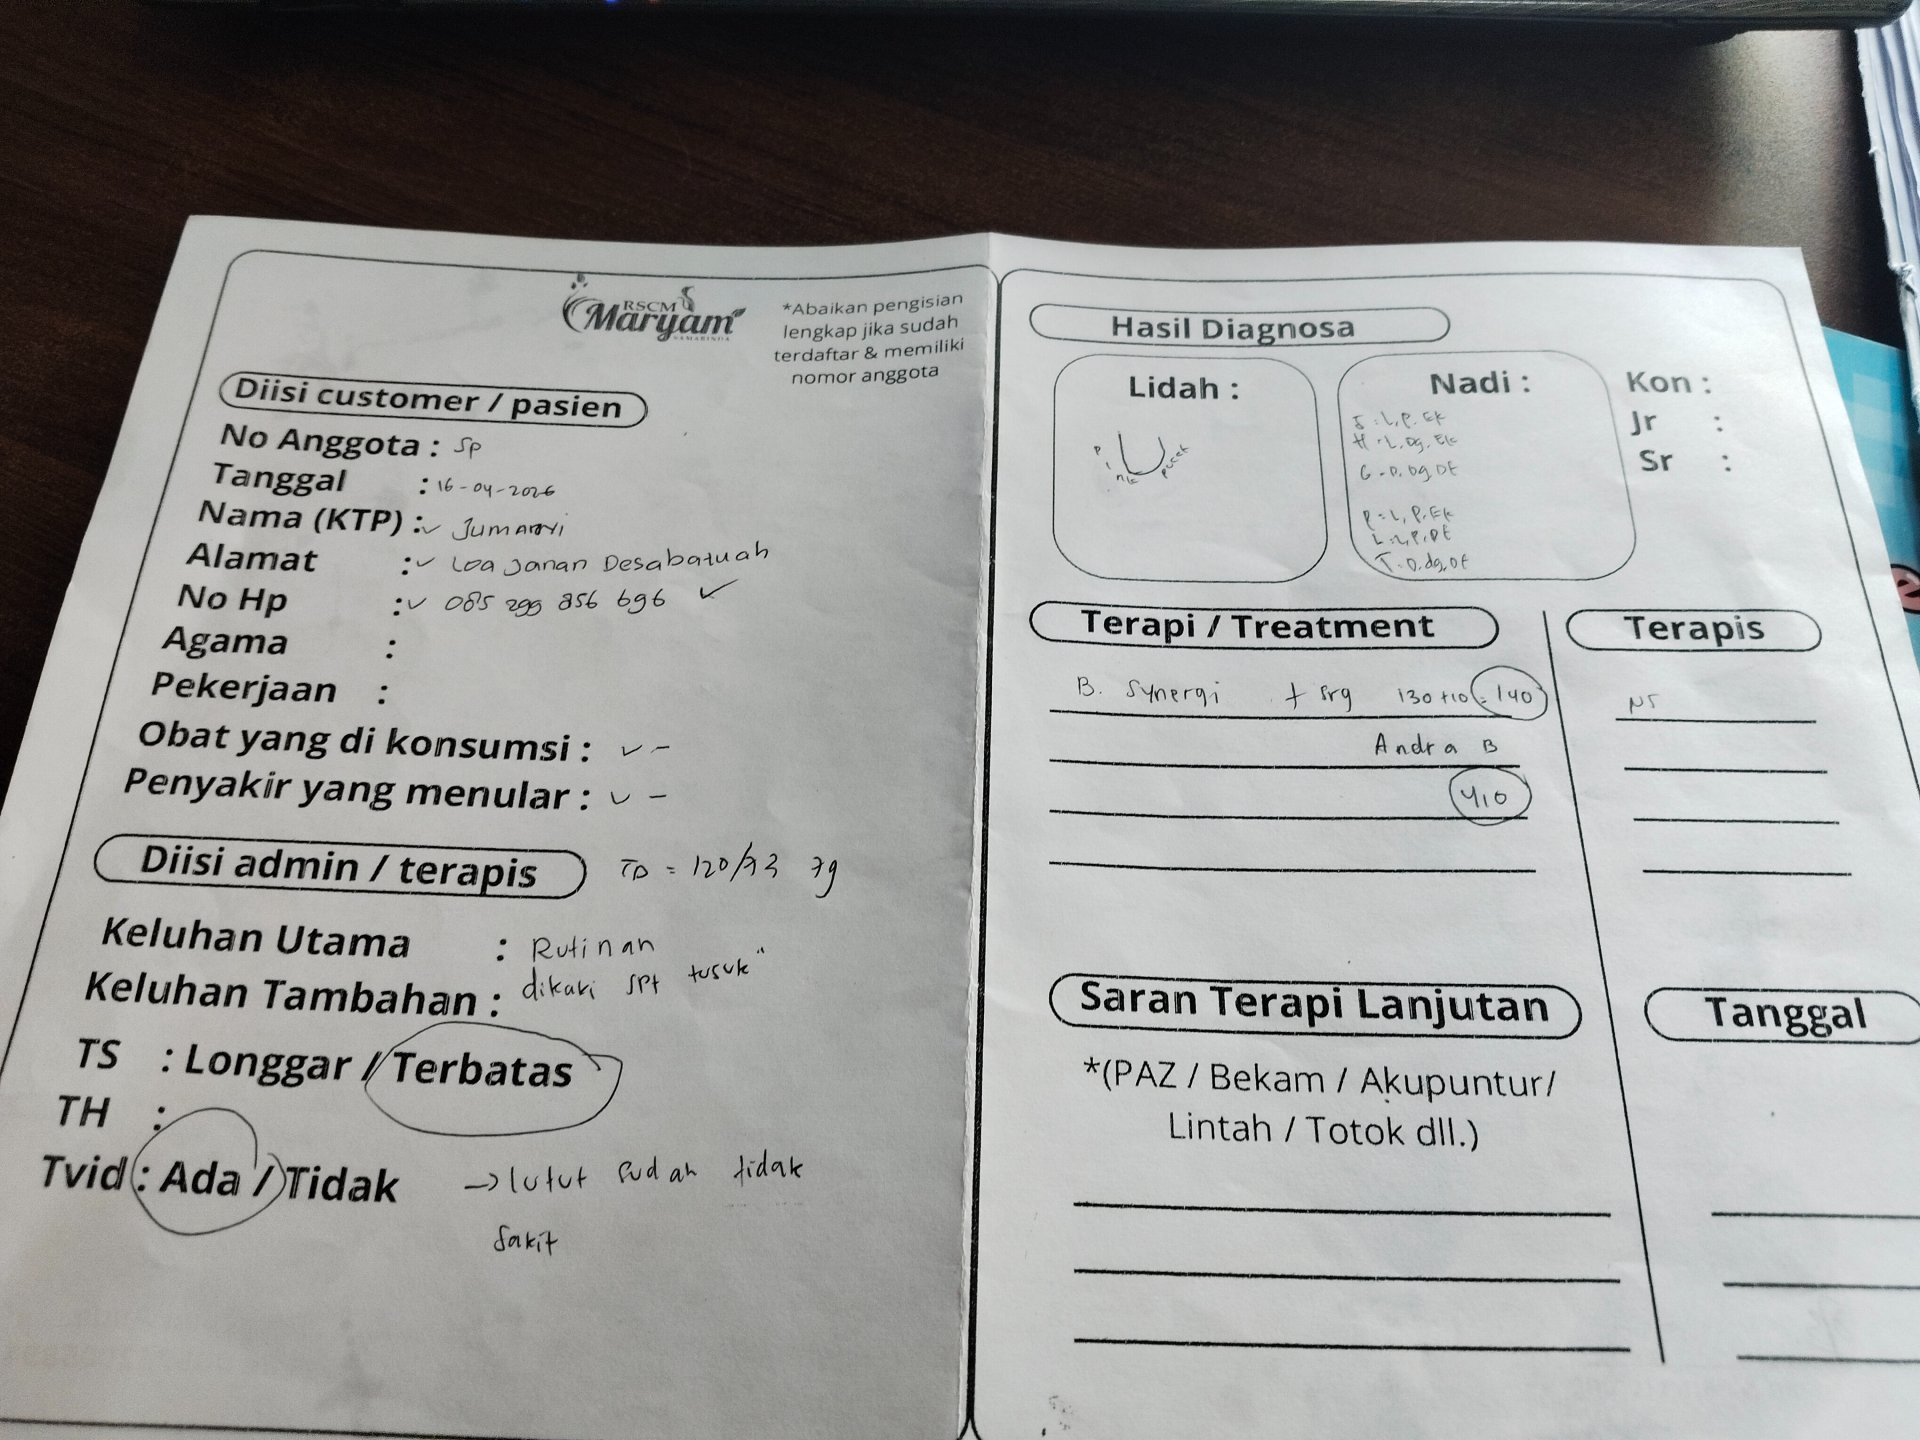 RSCM
Maryam
SAMARINDA
*Abaikan pengisian
lengkap jika sudah
terdaftar & memiliki
nomor anggota
Diisi customer / pasien
No Anggota : Sp
Tanggal : 16-04-2026
Nama (KTP) :
Alamat : ✓ Loa Janan Desabatuah
No Hp : ✓ 085 299 856 696 ✓
Agama :
Pekerjaan :
Obat yang di konsumsi : ✓ -
Penyakir yang menular : ✓ -
Diisi admin / terapis
TD = 120/73 79
Keluhan Utama : Rutinan
Keluhan Tambahan : dikaki spt tusuk"
TS : Longgar / Terbatas
TH :
Tvid : Ada / Tidak → lutut sudah tidak
sakit
Hasil Diagnosa
Lidah :
Pink
pucat
Nadi :
J : L, P, Ek
H : L, Dg, Ek
G : D, Dg, Dt
P : L, P, Ek
L : L, P, Dt
T : D, dg, Dt
Kon :
Jr :
Sr :
Terapi / Treatment
B. Synergi + Srg 130+10 = 140
Andra B
410
Terapis
NS
Saran Terapi Lanjutan
*(PAZ / Bekam / Akupuntur/
Lintah / Totok dll.)
Tanggal